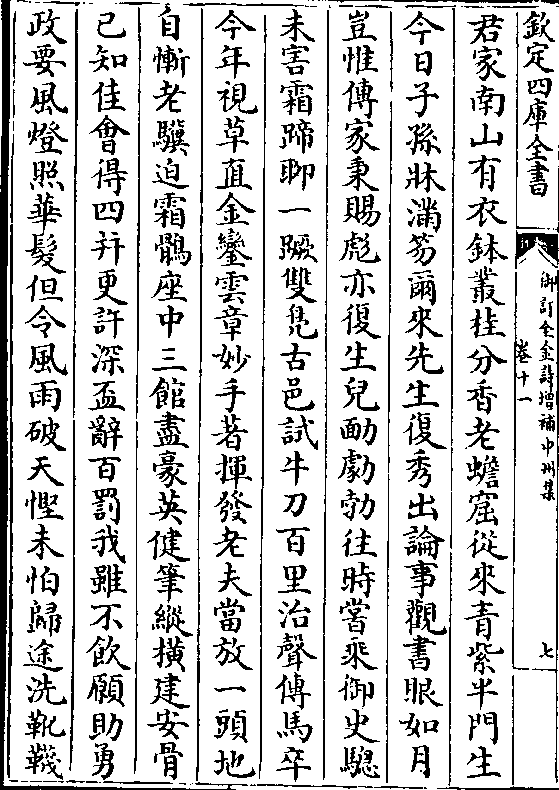 欽定四庫全書
御訂全金詩增補中州集
卷十一
七
君家南山有衣鉢叢桂分香老蟾窟從來青紫半門生
今日子孫牀滿笏爾來先生復秀出論事觀書眼如月
豈惟傳家秉賜彪亦復生兒勔劇勃往時嘗乘御史驄
未害霜蹄聊一蹶雙鳧古邑試牛刀百里治聲傳馬卒
今年視草直金鑾雲章妙手著揮發老夫當放一頭地
自慚老驥迫霜鶻座中三館盡豪英健筆縱橫建安骨
已知佳會得四并更許深盃辭百罰我雖不飲願助勇
政要風燈照華髮但令風雨破天慳未怕歸途洗靴韈